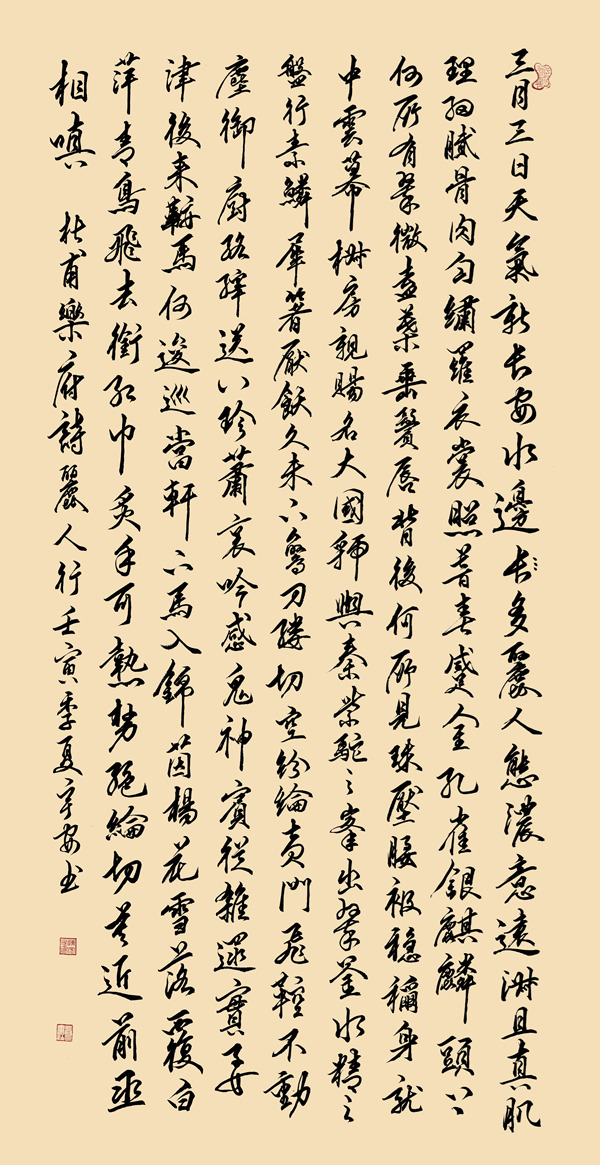 三月三日天氣新長安水邊長多麗人態濃意遠淑且真肌
理細膩骨肉勻繡羅衣裳照暮春蹙金孔雀銀麒麟頭上
何所有翠微盍葉垂鬢唇背後何所見珠壓腰衱穩稱身就
中雲幕椒房親賜名大國虢與秦紫駝之峯出翠釜水精之
盤行素鱗犀箸厭飫久未下鸞刀縷切空紛綸黃門飛鞚不動
塵御廚絡繹送八珍蕭哀吟感鬼神賓從雜遝實要
津後來鞍馬何逡巡當軒下馬入錦茵楊花雪落覆白
萍青鳥飛去銜紅巾炙手可熱勢絕綸切莫近前丞
相嗔 杜甫樂府詩麗人行壬寅季夏宇安書